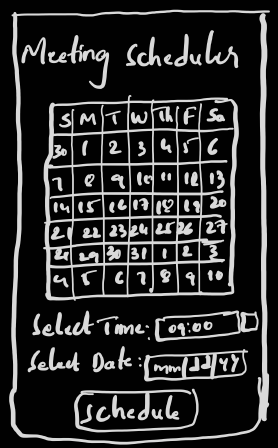 Meeting Scheduler
S M T W Th F Sa
30 1 2 3 4 5 6
7 8 9 10 11 12 13
14 15 16 17 18 19 20
21 22 23 24 25 26 27
28 29 30 31 1 2 3
4 5 6 7 8 9 10
Select Time: 09:00
Select Date: mm/dd/yy
Schedule